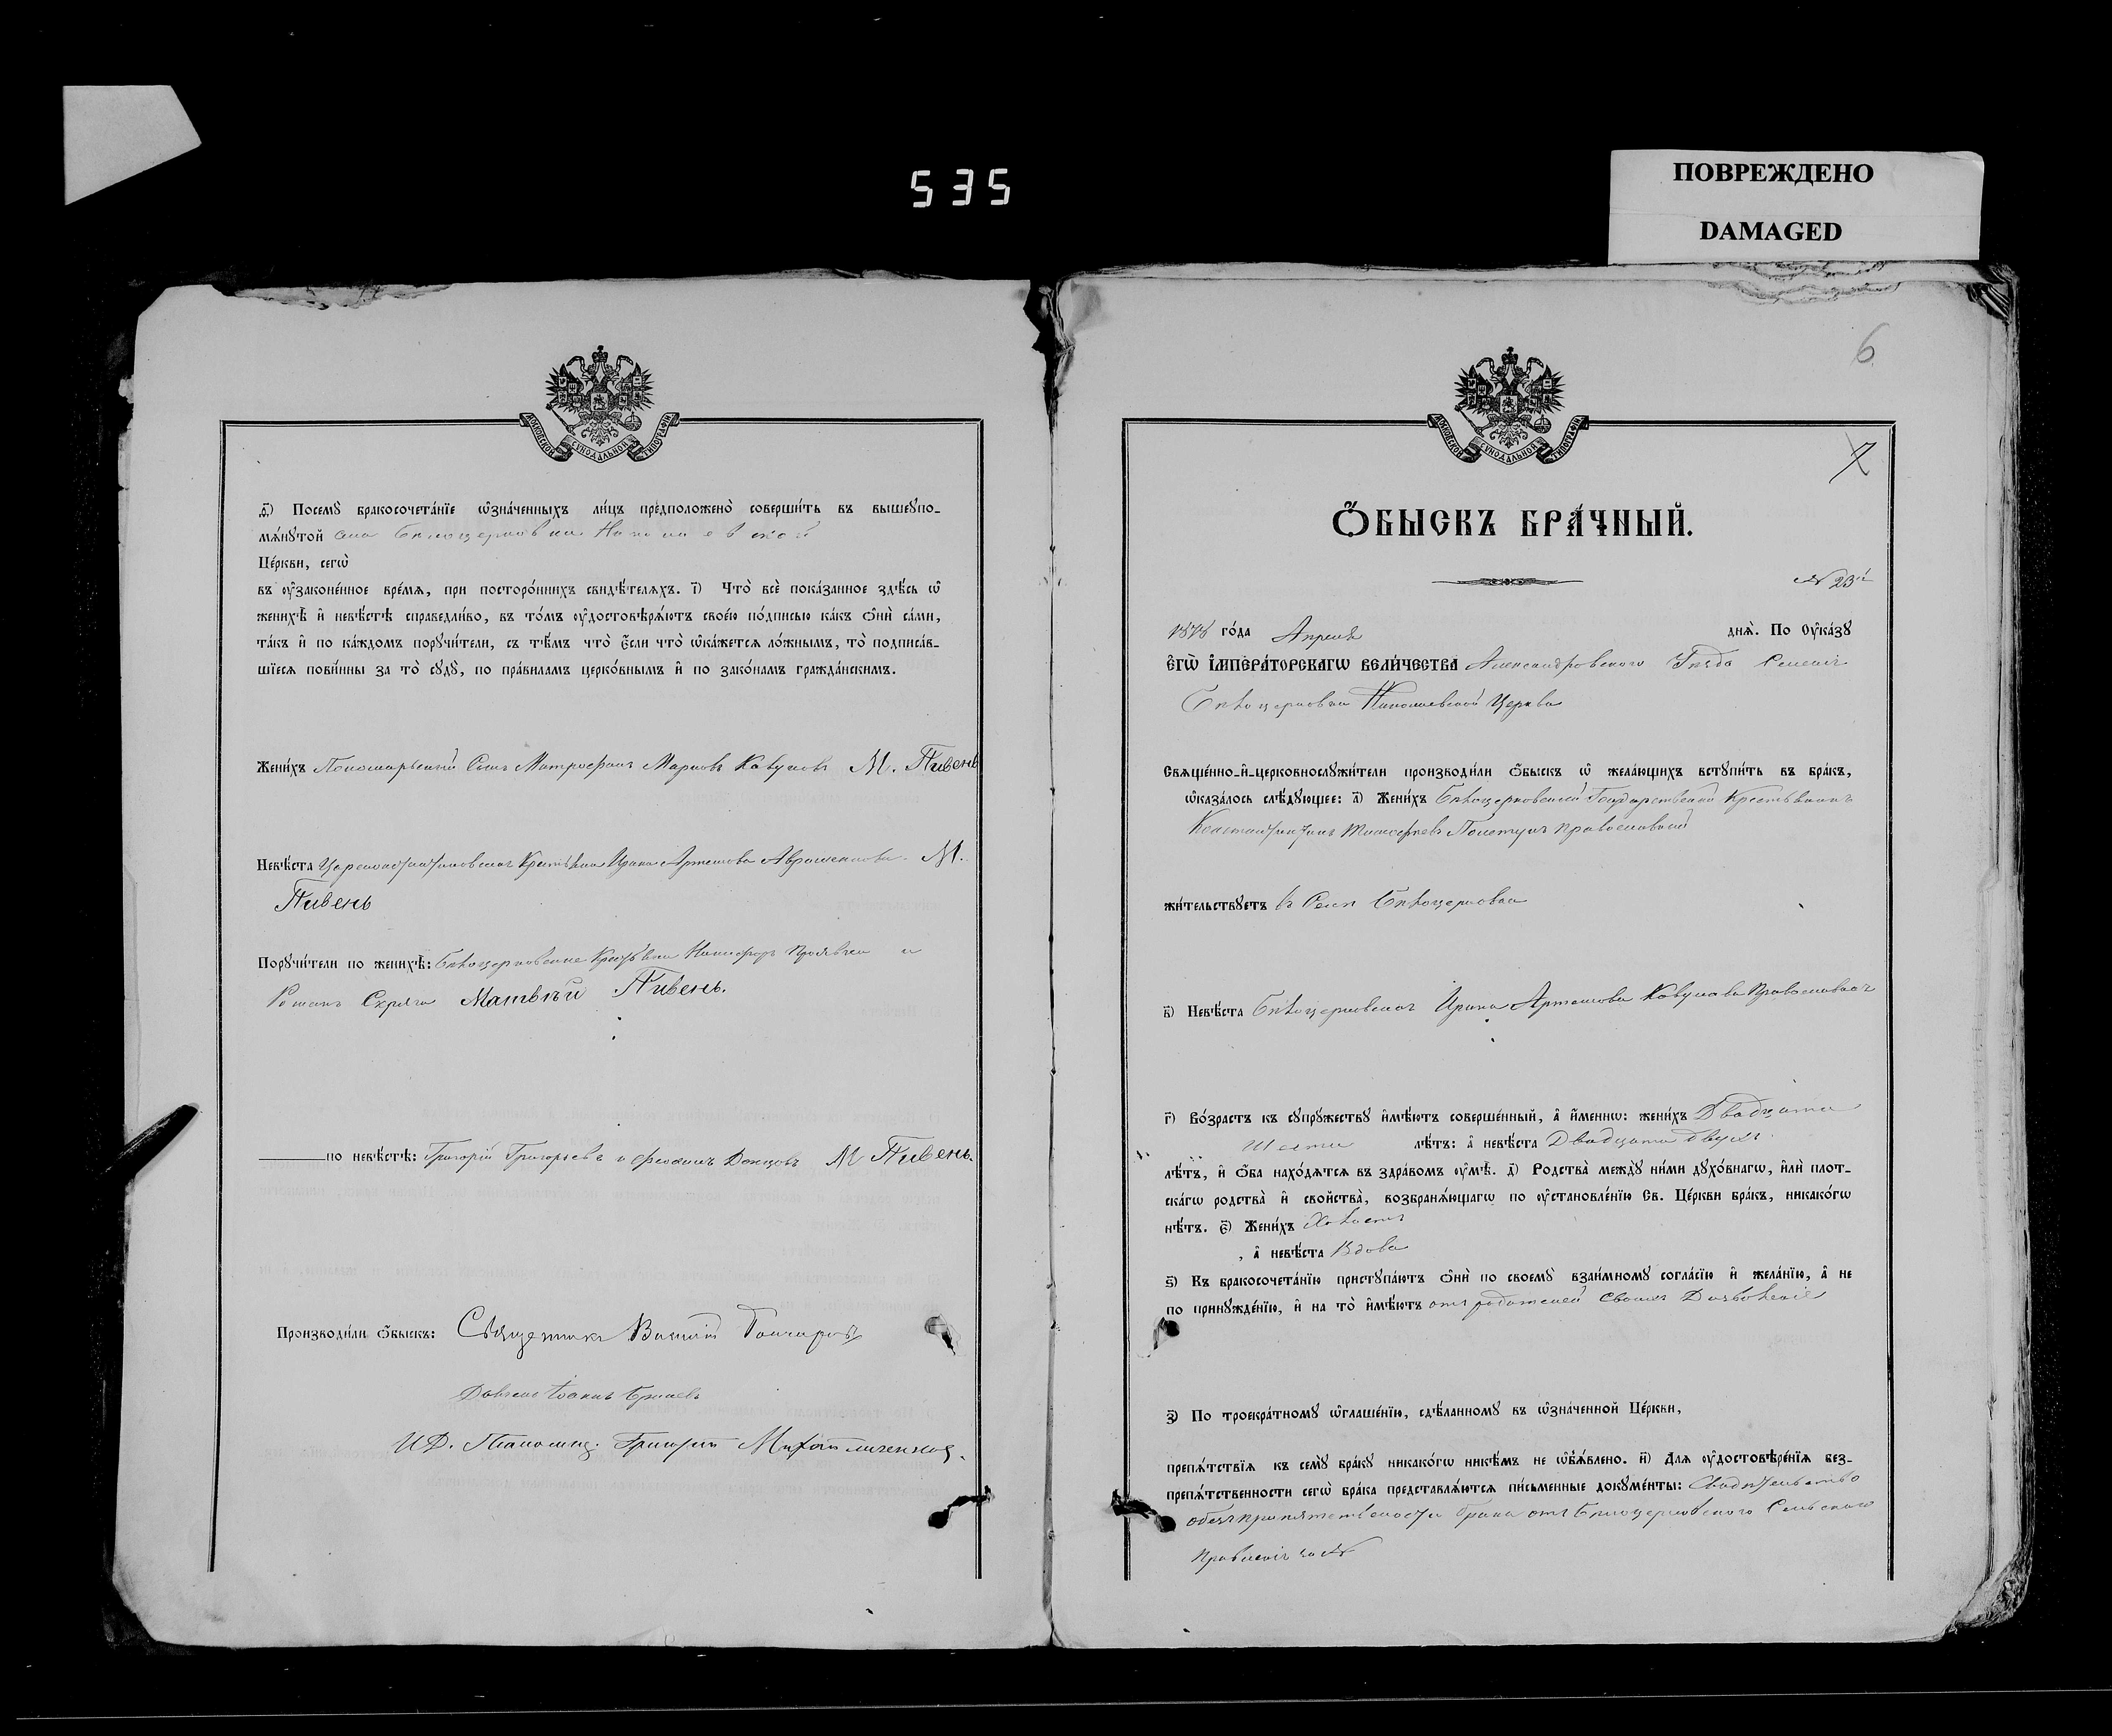 535
ПОВРЕЖДЕНО
DAMAGED
МОСКОВСКОЙ СУНОДАЛЬНОЙ ТИПОГРАФІИ
д҃і) Посемꙋ̀ бракосочета́нїе ѡ҆зна́ченныхъ ли́цъ предположено̀ соверши́ть въ вышеꙋпо-
мѧ́нꙋтой села Бѣлоцерковки Николаевской
Це́ркви, сегѡ̀
въ ᲂу҆законе́нное вре́мѧ, при посторо́ннихъ свидѣ́телѧхъ. і҃) Что̀ всѐ пока́занное здѣ́сь ѡ҆
женихѣ̀ и҆ невѣ́стѣ справедли́во, въ то́мъ ᲂу҆достовѣрѧ́ютъ свое́ю по́дписью ка́къ ѻ҆нѝ са́ми,
та́къ и҆ по ка́ждомъ порꙋчи́тели, съ тѣ́мъ что̀ є҆́сли что̀ ѡ҆ка́жетсѧ ло́жнымъ, то̀ подписа́в-
шїесѧ пови́нны за то̀ сꙋдꙋ̀, по пра́виламъ церко́внымъ и҆ по зако́намъ гражда́нскимъ.
Жени́хъ Пономарьскій Сынъ Митрофанъ Марковъ Кавуновъ М. Пивень
Невѣ́ста Царекон Ирина Артемова Авраменкова. М.
Пивень
Порꙋчи́тели по женихѣ̀: Бѣлоцерковские Крестьяне Никифоръ и
Романъ Скряга Матвѣй Пивень.
по невѣ́стѣ: Григорій Григорьевъ и Донцовъ М Пивень.
Производи́ли ѻ҆́быскъ: Священникъ Василій Гончаровъ
Іоаннъ
И.Д. Псаломщ. Григорій
6
7
Ѻ҆́БЫСКЪ БРА́ЧНЫЙ.
№ 23й
1878 го́да Апреля днѧ̀. По Оу҆ка́зꙋ
є҆гѡ̀ і҆мпера́торскагѡ вели́чества Александровского Уезда Селенія
Бѣлоцерковки Николаевской Церкви
Свѧще́нно-и҆-церковнослꙋжи́тели производи́ли ѻ҆́быскъ ѡ҆ жела́ющихъ встꙋпи́ть въ бра́къ,
ѡ҆каза́лось слѣ́дꙋющее: а҃) Жени́хъ Бѣлоцерковский Государственный Крестьянинъ
Константинъ Тимофеевъ православный
жи́тельствꙋетъ въ Селѣ Бѣлоцерковки
в҃) Невѣ́ста Бѣлоцерковская Ирина Артемова Кавунова Православная
г҃) Во́зрастъ къ сꙋпрꙋ́жествꙋ и҆мѣ́ютъ соверше́нный, а҆ и҆́менно: жени́хъ Двадцати
Шести лѣ́тъ: а҆ невѣ́ста Двадцати двухъ
лѣ́тъ, и҆ ѻ҆́ба нахо́дѧтсѧ въ здра́вомъ ᲂу҆мѣ̀. д҃) Родства̀ междꙋ̀ ни́ми дꙋхо́внагѡ, и҆лѝ плот-
ска́гѡ родства̀ и҆ свойства̀, возбранѧ́ющагѡ по ᲂу҆становле́нїю Св. Це́ркви бра́къ, никако́гѡ
нѣ́тъ. є҃) Жени́хъ Холостъ
, а҆ невѣ́ста Вдова
ѕ҃) Къ бракосочета́нїю пристꙋпа́ютъ ѻ҆нѝ по своемꙋ̀ взаи́мномꙋ согла́сїю и҆ жела́нїю, а҆ не
по принꙋжде́нїю, и҆ на то̀ и҆мѣ́ютъ отъ родителей своихъ Дозволеніе
з҃) По троекра́тномꙋ ѡ҆глаше́нїю, сдѣ́ланномꙋ въ ѡ҆зна́ченной Це́ркви,
препѧ́тствїѧ къ семꙋ̀ бра́кꙋ никако́гѡ никѣ́мъ не ѡ҆б̾ѧ́влено. и҃) Длѧ ᲂу҆достовѣре́нїѧ без-
препѧ́тственности сегѡ̀ бра́ка представлѧ́ютсѧ пи́сьменные докꙋме́нты: Свидѣтельство
обезпрепятственности брака отъ Бѣлоцерковского Сельского
Правленія за №